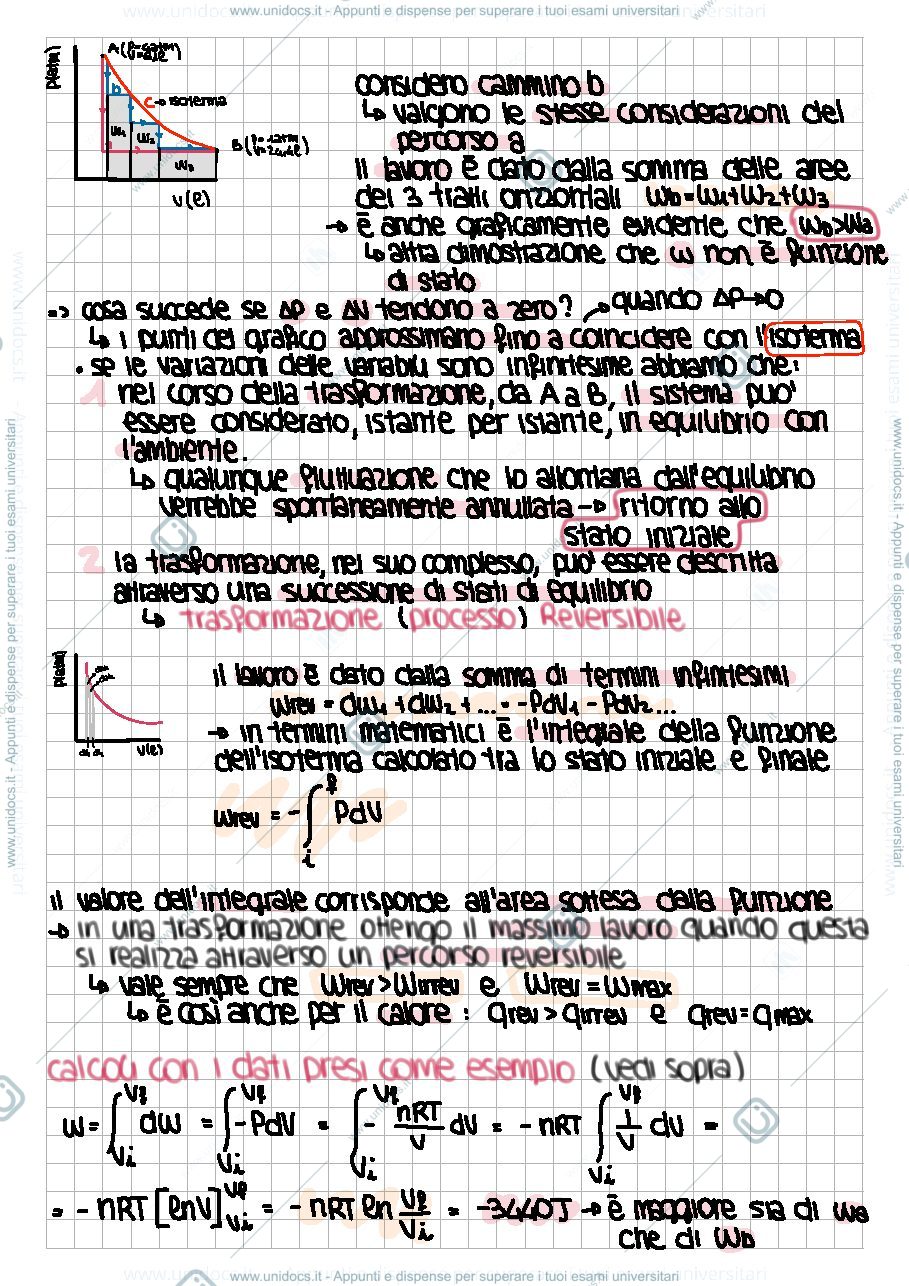 www.unidocs.it - Appunti e dispense per superare i tuoi esami universitari
P(atm)
b
c → isoterma
w1 w2
w3
V(l)
considero cammino b
↳ valgono le stesse considerazioni del
percorso a
il lavoro è dato dalla somma delle aree
dei 3 tratti orizzontali wb=w1+w2+w3
→ è anche graficamente evidente che wb>wa
↳ altra dimostrazione che w non è funzione
di stato
=> cosa succede se ΔP e ΔV tendono a zero? quando ΔP→0
↳ i punti del grafico approssimano fino a coincidere con l'isoterma
• se le variazioni delle variabili sono infinitesime abbiamo che:
1 nel corso della trasformazione, da A a B, il sistema puo'
essere considerato, istante per istante, in equilibrio con
l'ambiente.
↳ qualunque fluttuazione che lo allontana dall'equilibrio
verrebbe spontaneamente annullata → ritorno allo
stato iniziale
2 la trasformazione, nel suo complesso, puo' essere descritta
attraverso una successione di stati di equilibrio
↳ trasformazione (processo) Reversibile
P(atm)
V(l)
il lavoro è dato dalla somma di termini infinitesimi
wrev = dw1 + dw2 + ... = -PdV1 - PdV2...
→ in termini matematici è l'integrale della funzione
dell'isoterma calcolato tra lo stato iniziale e finale
wrev = -∫ᵢᶠ PdV
il valore dell'integrale corrisponde all'area sottesa dalla funzione
→ in una trasformazione ottengo il massimo lavoro quando questa
si realizza attraverso un percorso reversibile
↳ vale sempre che wrev > wirrev e, wrev = wmax
↳ è così anche per il calore : qrev > qirrev e qrev = qmax
calcoli con i dati presi come esempio (vedi sopra)
w = ∫Vi^Vf dw = ∫Vi^Vf -PdV = ∫Vi^Vf - nRT/V dV = - nRT ∫Vi^Vf 1/V dV =
= - nRT [lnV]Vi^Vf = - nRT ln Vf/Vi = -3440J → è maggiore sia di wa
che di wb
www.unidocs.it - Appunti e dispense per superare i tuoi esami universitari